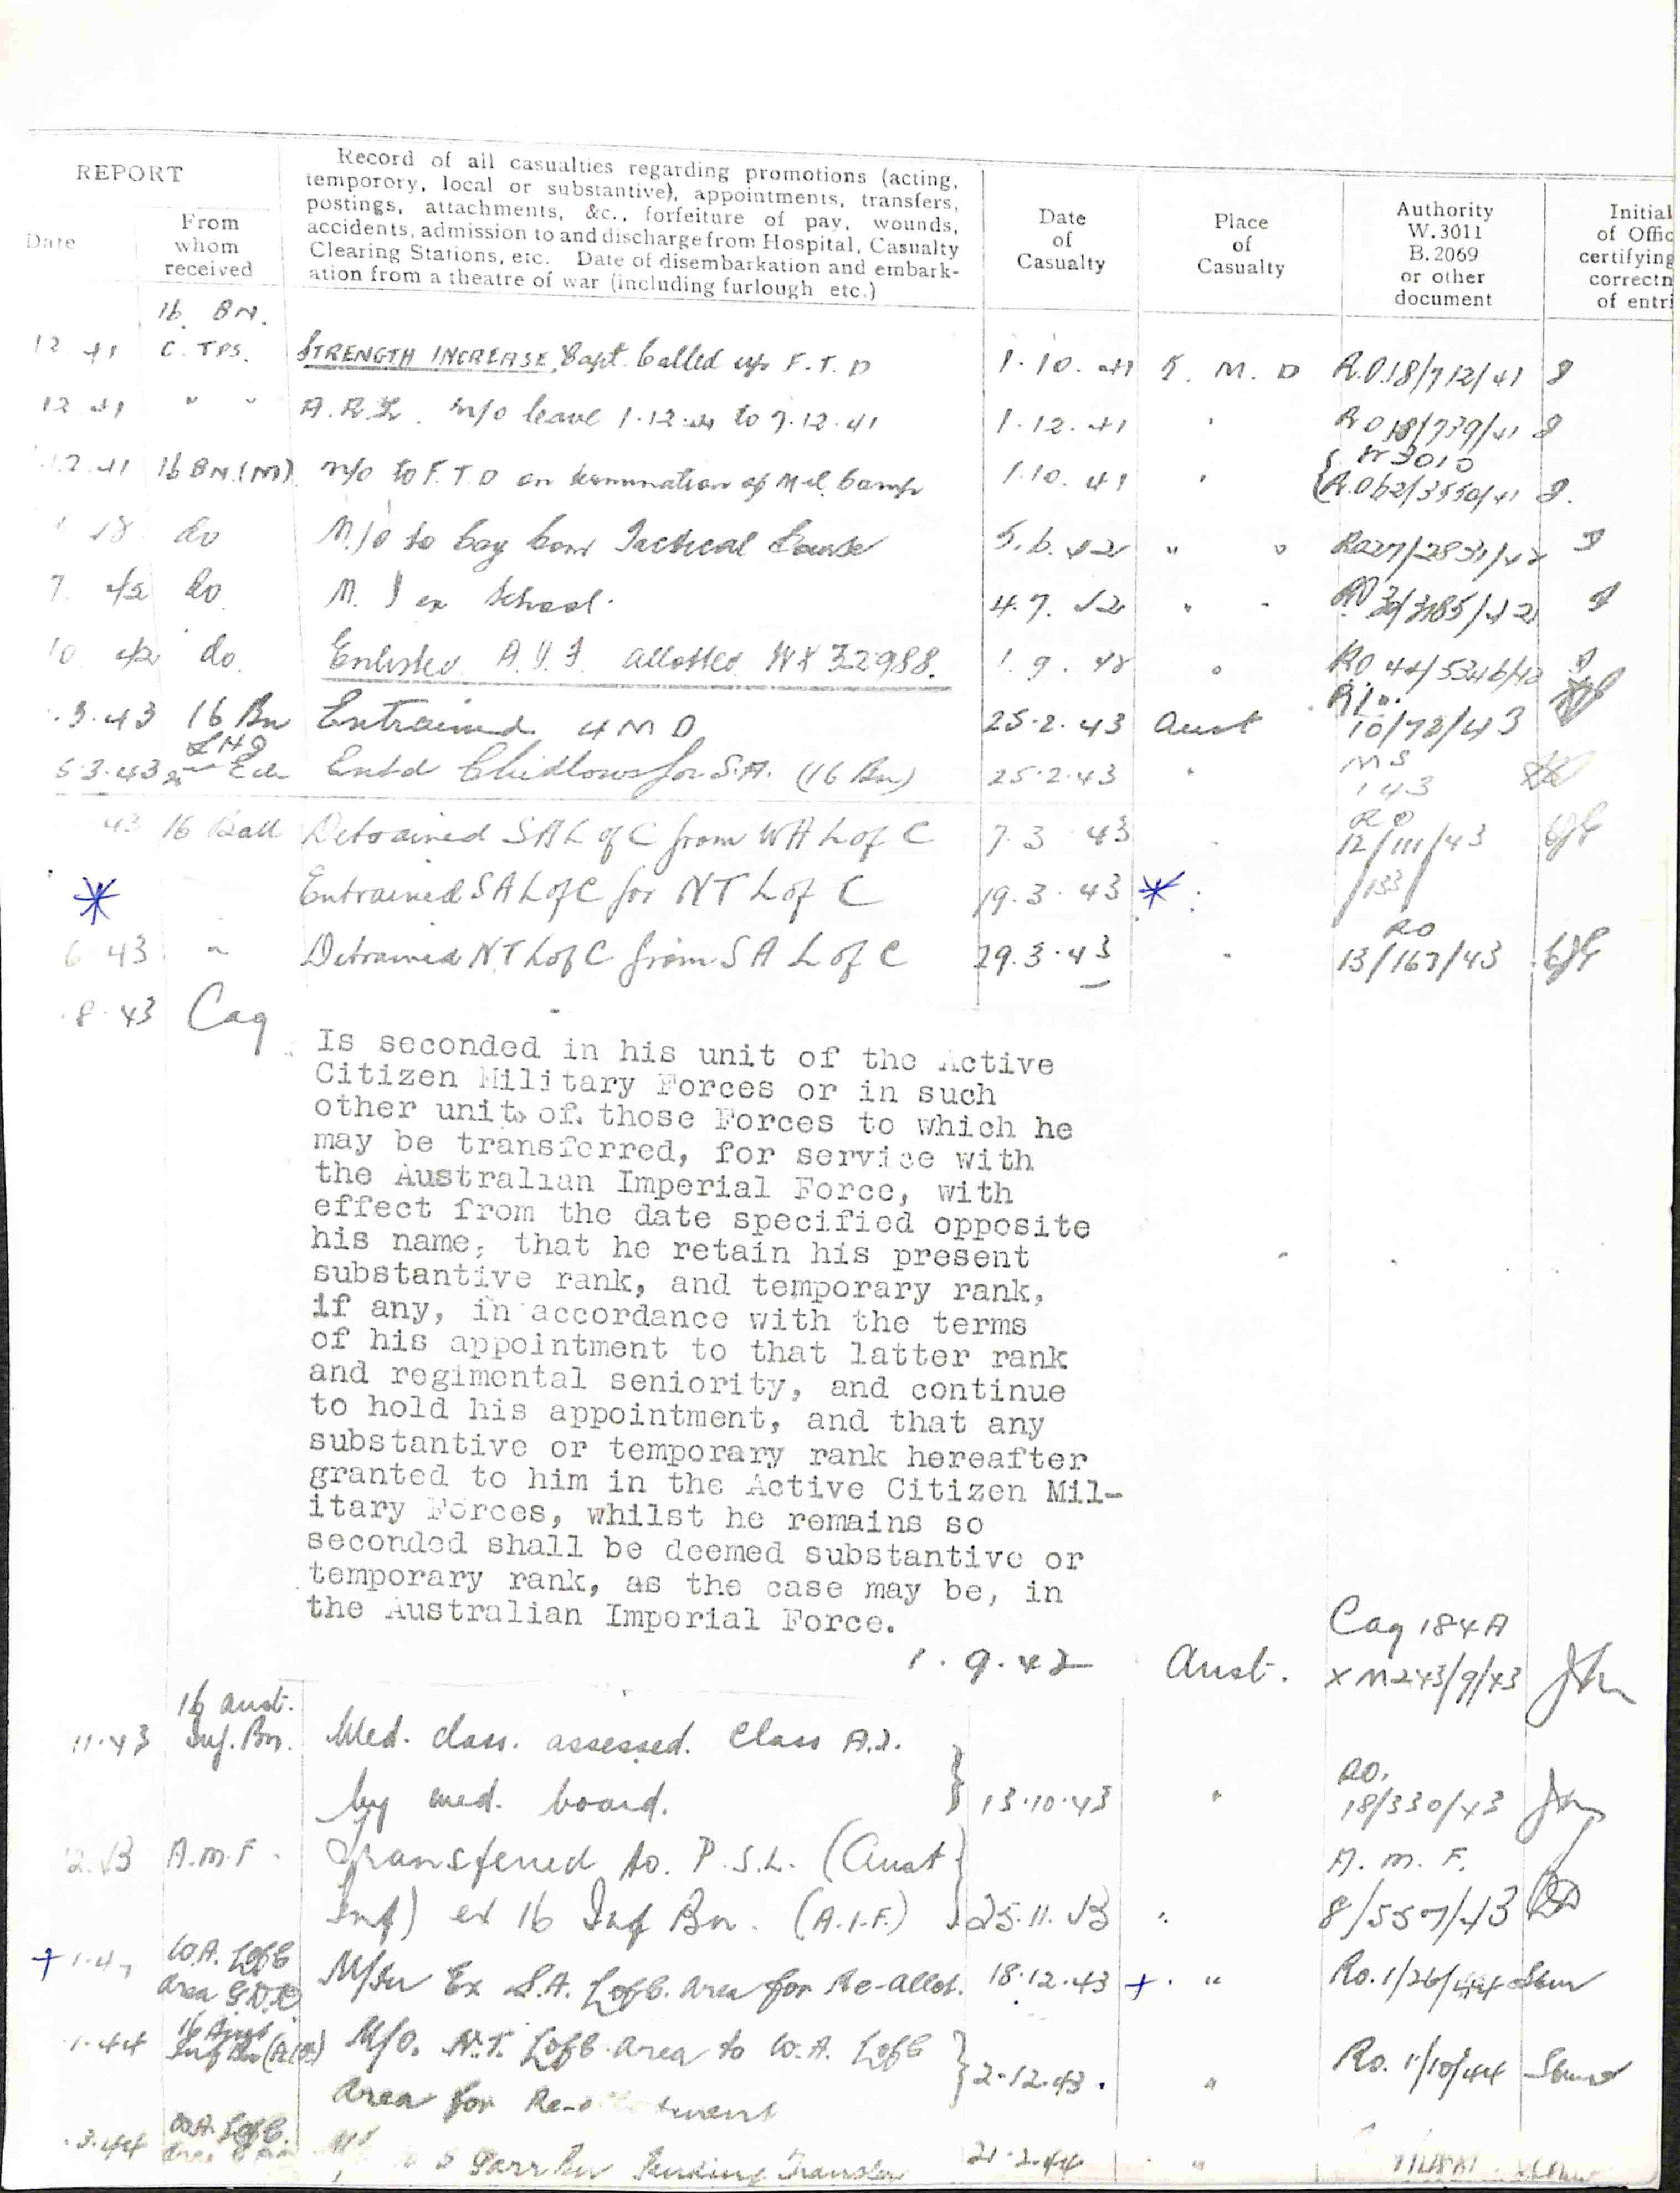 REPORT
Date
From
whom
received
Record of all casualties regarding promotions (acting,
temporory, local or substantive), appointments, transfers,
postings, attachments, &c., forfeiture of pay, wounds,
accidents, admission to and discharge from Hospital, Casualty
Clearing Stations, etc. Date of disembarkation and embark-
ation from a theatre of war (including furlough etc.)
Date
of
Casualty
Place
of
Casualty
Authority
W.3011
B.2069
or other
document
Initial
of Offic
certifying
correctn
of entri
16 BN.
12 41 C. TPS. STRENGTH INCREASE, Capt. Called up F.T.D 1.10.41 5. M. D R.O.18/712/41
12 41 " " A.R.L. M/O leave 1.12.41 to 7.12.41 1.12.41 " RO 18/739/41
W 3010
12.41 16 BN.(M) M/O to F.T.D on termination of Mil. Camp 1.10.41 " R.O 62/3550/41
do M/O to Coy Com Tactical Course 5.6.42 " " RO27/2831/42
7. 42 do M. I ex School. 4.7.42 " " RO 30/3185/42
10 42 do. Enlisted A.I.F. allotted WX 32988. 1.9.42 " RO 44/5346/42
R/O.
.3.43 16 Bn Entrained 4 M D 25.2.43 Aust 10/72/43
LHQ
5.3.43 2 Ech Entd Chidlows for S.A. (16 Bn) 25.2.43 " MS
143
RO
43 16 Batt Detrained SA L of C from WA L of C 7.3.43 " 12/111/43
* Entrained SA L of C for NT L of C 19.3.43 * " /133/
RO
6 43 " Detrained N.T L of C from S A L of C 29.3.43 " 13/167/43
.8.43 Cag
Is seconded in his unit of the Active
Citizen Military Forces or in such
other unit of those Forces to which he
may be transferred, for service with
the Australian Imperial Force, with
effect from the date specified opposite
his name, that he retain his present
substantive rank, and temporary rank,
if any, in accordance with the terms
of his appointment to that latter rank
and regimental seniority, and continue
to hold his appointment, and that any
substantive or temporary rank hereafter
granted to him in the Active Citizen Mil-
itary Forces, whilst he remains so
seconded shall be deemed substantive or
temporary rank, as the case may be, in
the Australian Imperial Force.
Cag 184A
1.9.42 Aust. XM243/9/43
16 Aust.
11.43 Inf. Bn. Med. class. assessed. Class A.2.
by med. board. } 13.10.43 " RO. 18/330/43
12.43 A.M.F. Transferred to. P.S.L. (Aust A. M. F.
Inf) ex 16 Inf Bn. (A.I.F.) } 25.11.43 " 8/557/43
W.A. LofC
+ 1.4 Area G.D.D M/In Ex S.A. LofC. Area for Re-allot. 18.12.43 + " Ro. 1/26/44
16 Aust
.1.44 Inf Bn (AIF) M/O. N.T. LofC. Area to W.A. LofC } 2.12.43. " Ro. 1/10/44
Area for Re-
W.A. LofC.
.3.44 Area Garr Bn Pending Transfer 21.2.44 "